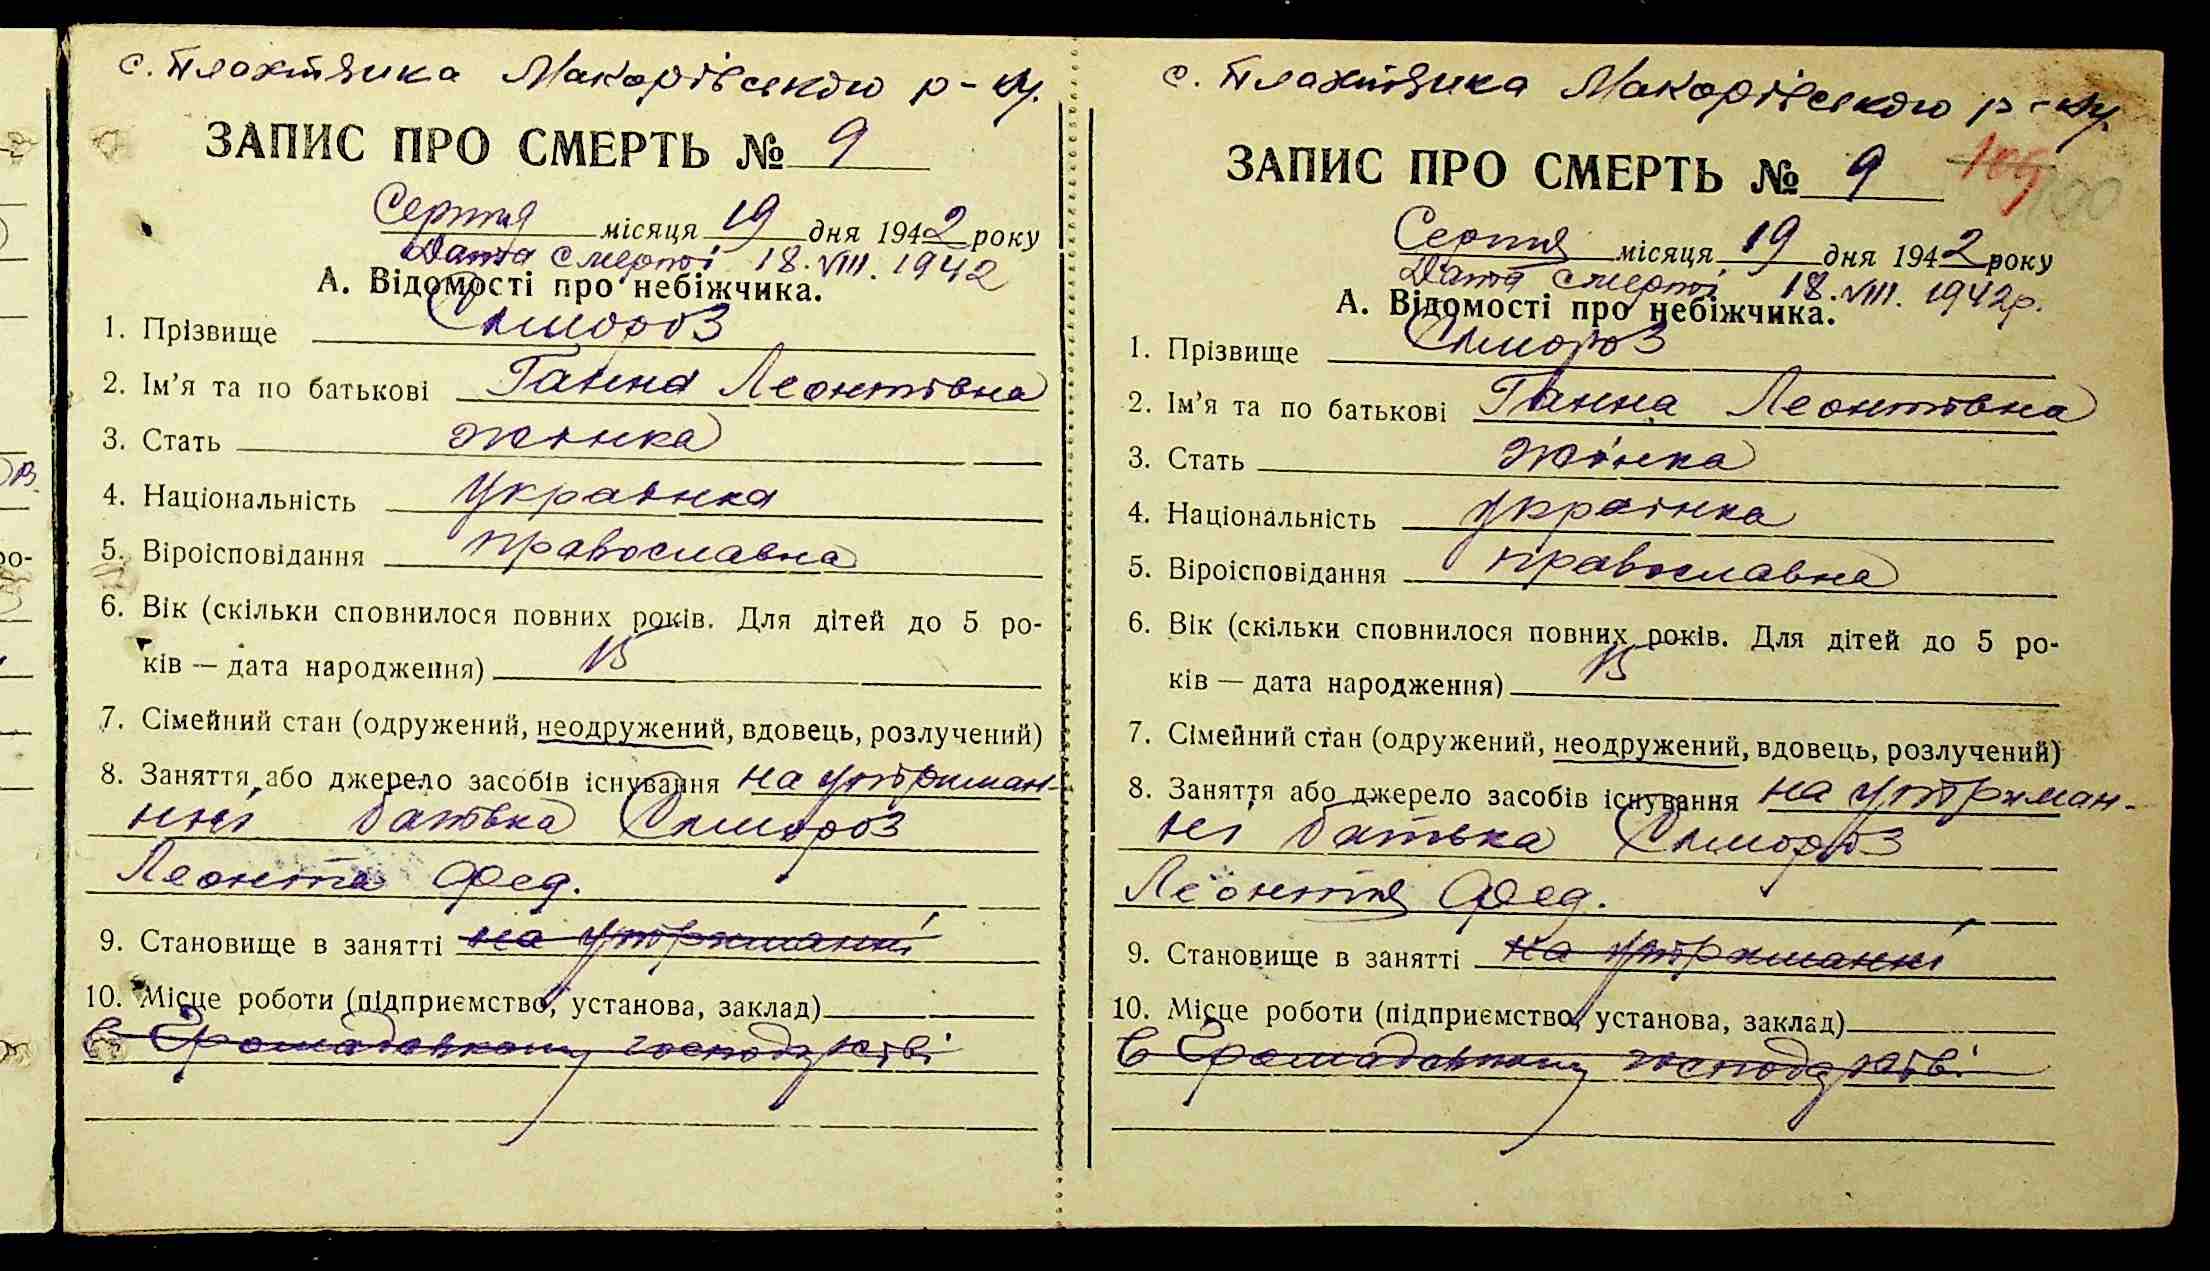 с. Плахтянка Макарівського р-ну.
ЗАПИС ПРО СМЕРТЬ № 9
Серпня місяця 19 дня 1942 року
Дата смерті 18. VIII. 1942
А. Відомості про небіжчика.
1. Прізвище
2. Ім'я та по батькові Ганна Леонтівна
3. Стать жінка
4. Національність українка
5. Віроісповідання православна
6. Вік (скільки сповнилося повних років. Для дітей до 5 ро-
ків — дата народження) 15
7. Сімейний стан (одружений, неодружений, вдовець, розлучений)
8. Заняття або джерело засобів існування на утриман-
нні батька
Леонтія Фед.
9. Становище в занятті на утриманні
10. Місце роботи (підприємство, установа, заклад)
в Громадському господарстві
с. Плахтянка Макарівського р-ну.
ЗАПИС ПРО СМЕРТЬ № 9 109 100
Серпня місяця 19 дня 1942 року
Дата смерті 18. VIII. 1942 р.
А. Відомості про небіжчика.
1. Прізвище
2. Ім'я та по батькові Ганна Леонтівна
3. Стать жінка
4. Національність українка
5. Віроісповідання православна
6. Вік (скільки сповнилося повних років. Для дітей до 5 ро-
ків — дата народження) 15
7. Сімейний стан (одружений, неодружений, вдовець, розлучений)
8. Заняття або джерело засобів існування на утриман-
ні батька
Леонтія Фед.
9. Становище в занятті на утриманні
10. Місце роботи (підприємство, установа, заклад)
в Громадському господарстві